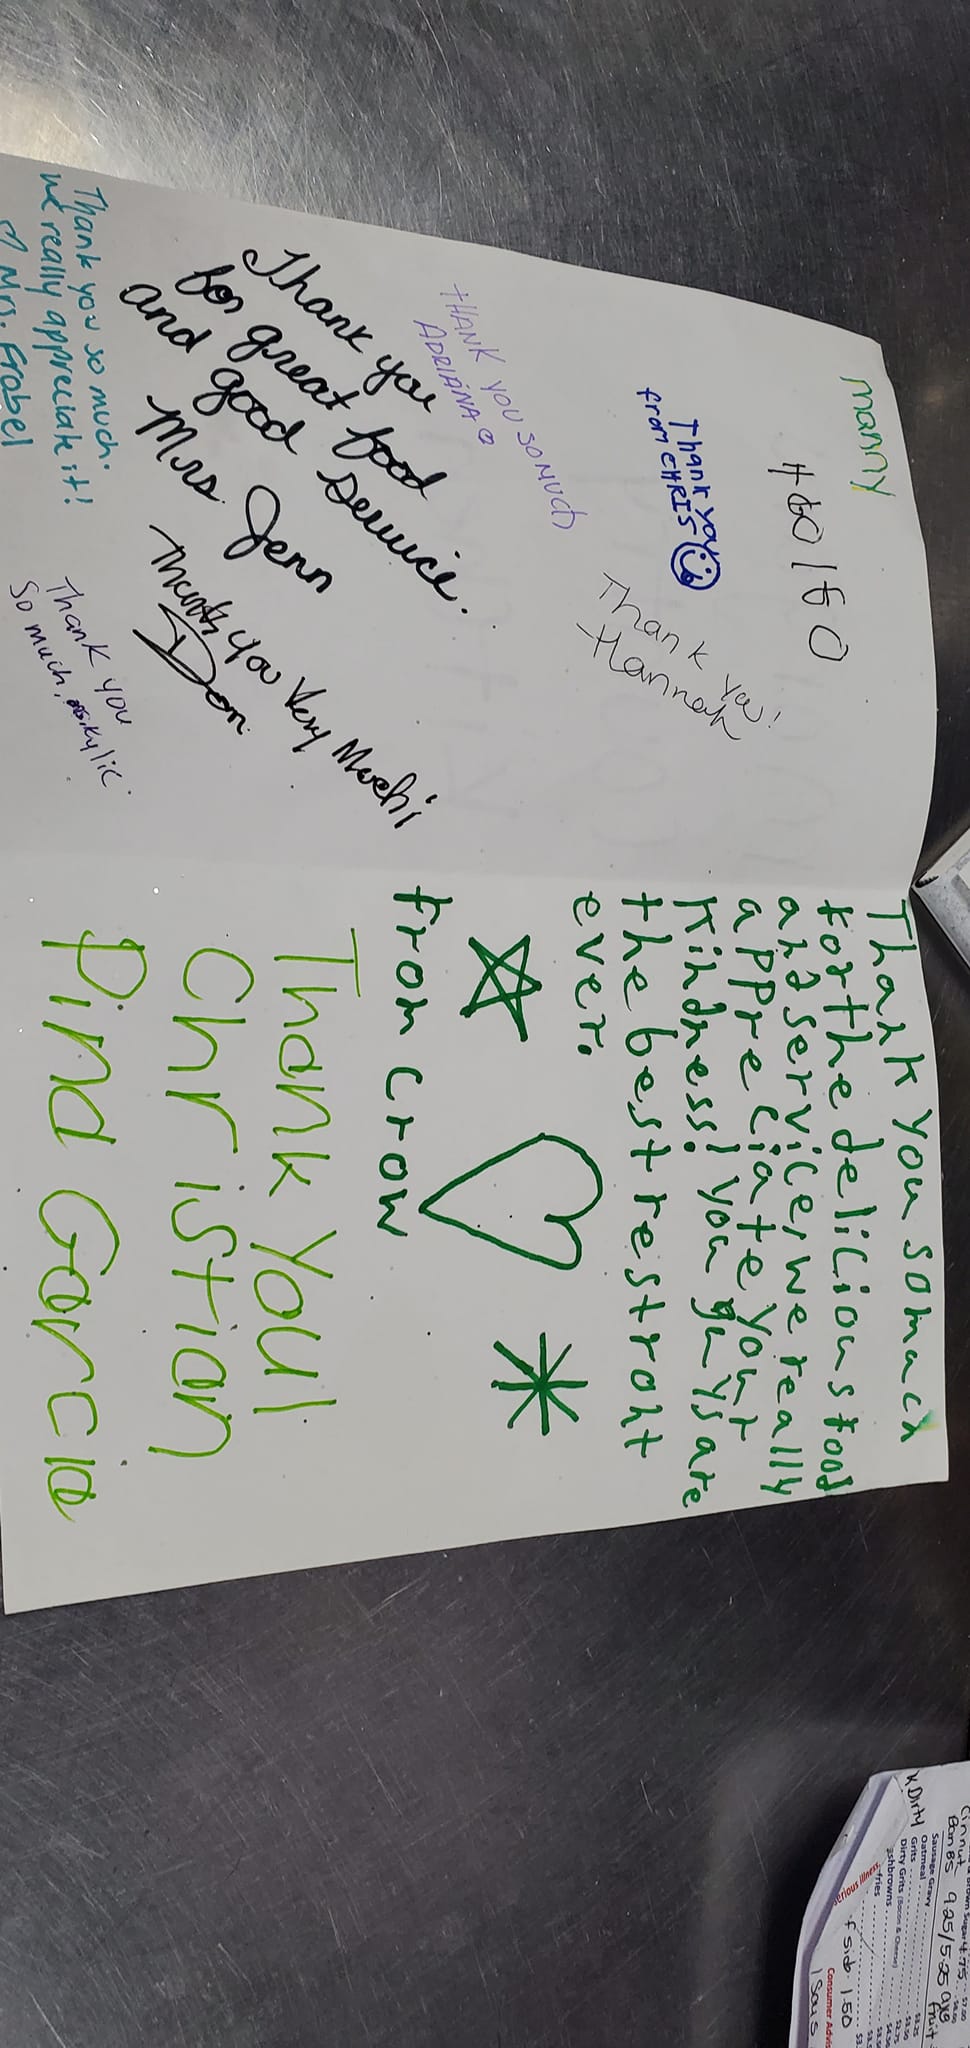 manny
Thank you
from CHRIS
Thank you!
-Hannah
THANK YOU SO MUCH
ADRIANA
Thank you
for great food
and good service.
Mrs. Jenn
Thank you very Much!
Don
Thank you so much.
we really appreciate it!
Mrs. Frabel
Thank you
so much,
Thank you somuch
for the delicious food
and service, we really
appreciate your
Kindness! you guys are
the best restront
ever.
From crow
Thank you!
Christian
Pina Garcia
K Dirty
Sausage Gravy
Oatmeal
Grits
Dirty Grits (Bacon & Cheese)
fries
erious illness.
f side 1.50
Consumer Advis